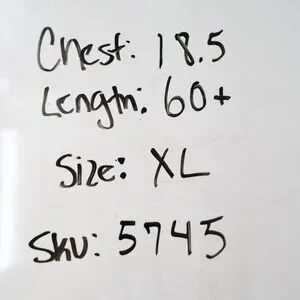 Chest: 18.5
Length: 60+
Size: XL
SKU: 5745